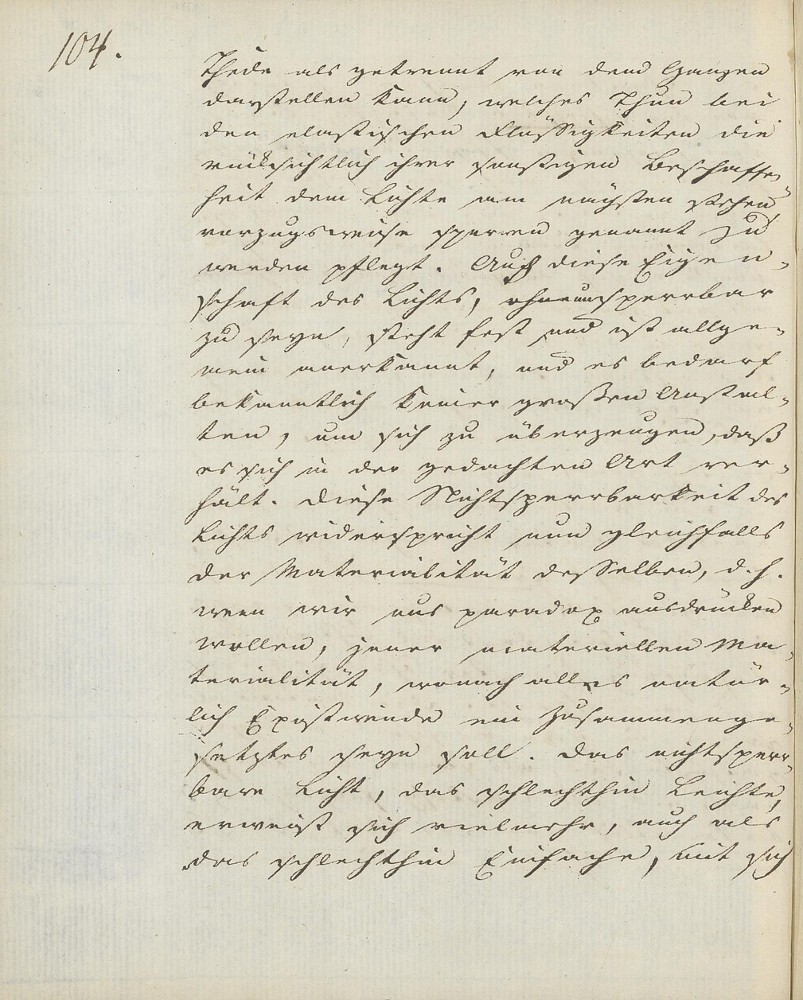 104.
Theile als getrennt von dem Ganzen
darstellen kann, welches Thun bei
den elastischen Flüssigkeiten die
rücksichtlich ihrer sonstigen Beschaffen-
heit dem Lichte am nächsten stehen
vorzugsweise sperren genannt zu
werden pflegt. Auch diese Eigen-
schaft des Lichts, unsperrbar
zu seyn, steht fest und ist allge-
mein anerkannt, und es bedarf
bekanntlich keiner großen Anstal-
ten, um sich zu überzeugen, daß
es sich in der gedachten Art ver-
hält. Diese Nichtsperrbarkeit des
Lichts widerspricht nun gleichfalls
der Materialität desselben, d. h.
wenn wir uns paradox ausdrücken
wollen, jener materiellen Ma-
terialität, wonach alles natür-
lich Existirende ein Zusammenge-
setztes seyn soll. Das nichtsperr-
bare Licht, das schlechthin Leichte,
erweist sich vielmehr, auch als
das schlechthin Einfache, mit sich